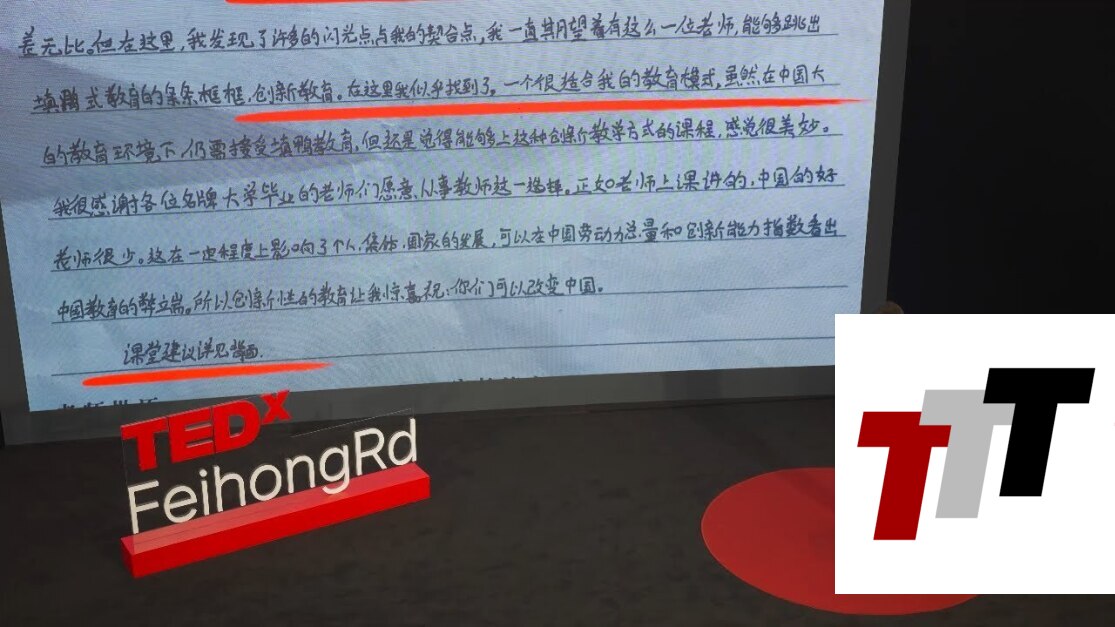 差无比。但在这里,我发现了许多的闪光点与我的契合点,我一直期望着有这么一位老师,能够跳出
填鸭式教育的条条框框,创新教育。在这里我似乎找到了。一个很适合我的教育模式,虽然在中国大
的教育环境下,仍需接受填鸭教育,但还是觉得能够上这种创新教学方式的课程,感觉很美妙。
我很感谢各位名牌大学毕业的老师们愿意从事教师这一选择。正如老师上课讲的,中国的好
老师很少。这在一定程度上影响了个人、集体、国家的发展,可以在中国劳动力总量和创新能力指数看出
中国教育的弊端。所以创新性的教育让我惊喜,祝你们可以改变中国。
课堂建议详见背面.
TEDx
FeihongRd
TTT